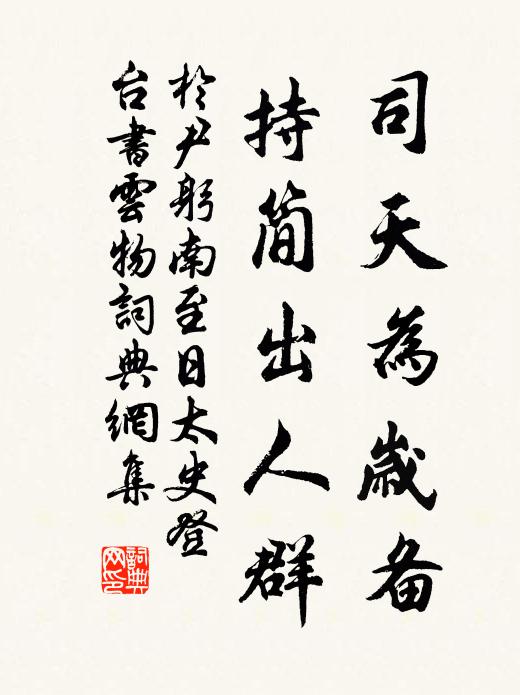 司天為歲备
持簡出人群
於尹躬南至日太史登
台書雲物詞典網集
詞典網印